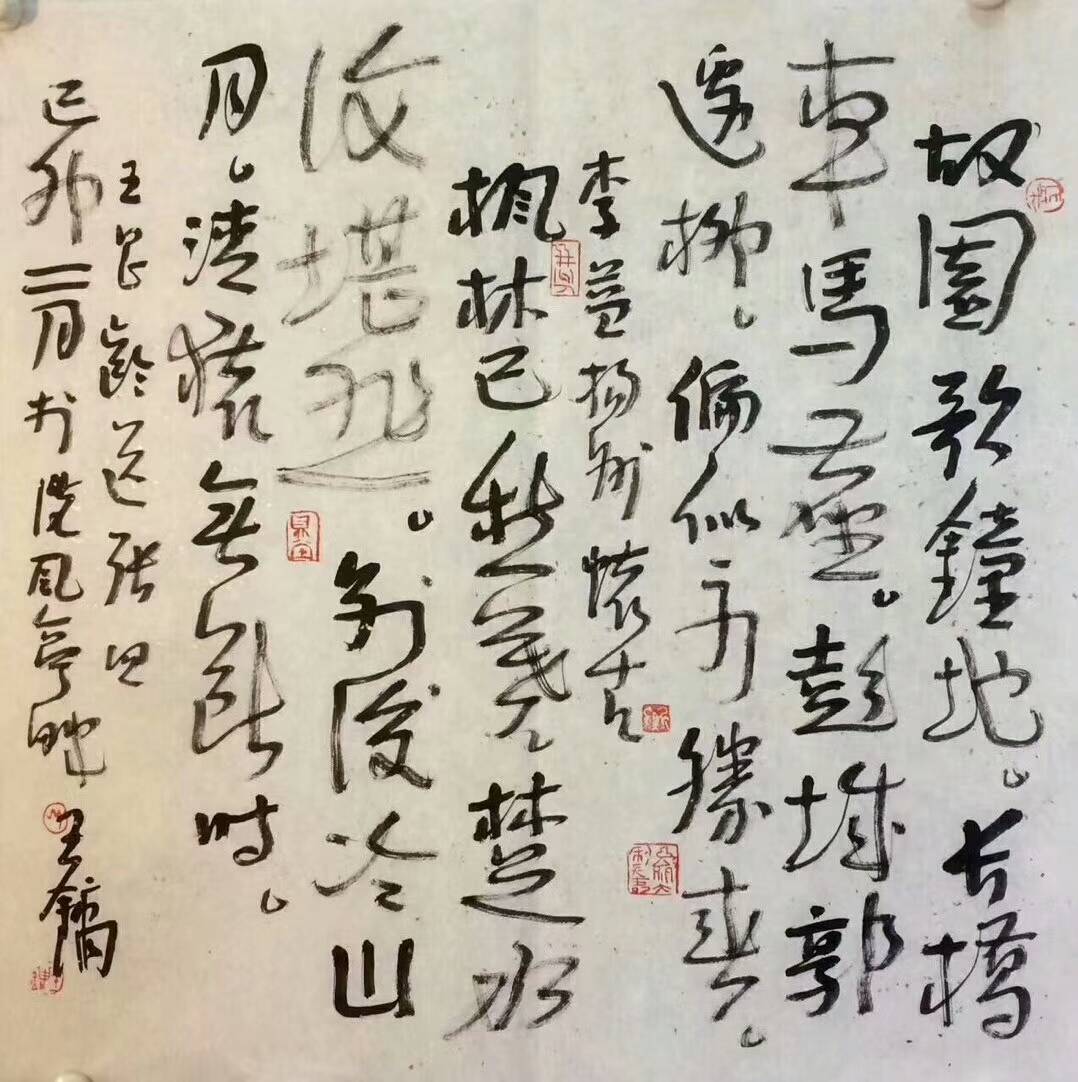 故園歌鐘地。長橋
車馬塵。彭城郭
邊柳、偏似不勝春、
李益揚州懷古
楓林已愁暮、楚水
復堪悲。別後冷山
月。清猿無斷時。
王昌齡送張四
己卯二月於風亭畔 王鏞